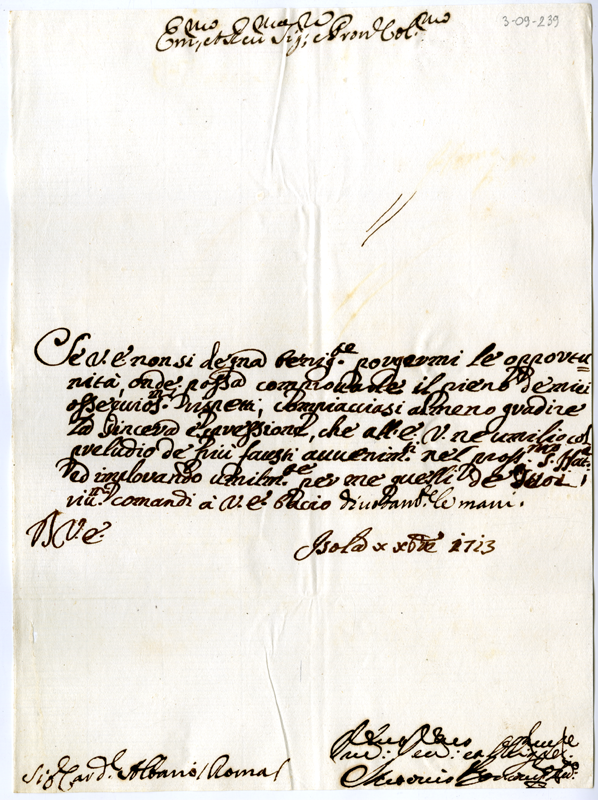 3-09-239
Em.mo, et R.mo Sig.r, e Pron Col.mo
Se V. E. non si degna benig.te porgermi le opportu=
nità, onde possa comprovarle il pieno de miei
osseq.mi rispetti, compiacciasi almeno gradire
la sincera espressione, che all' E. V. ne umilio col
preludio de più fausti avvenim.ti nel pross.mo S. Nat.e
Ed implorando umilm.te per me quelli de suoi
riv.mi comandi à V. E. bacio divotam.te le mani.
D V. E.
Isola x xbre 1713
Sig.r Card.l Albano / Roma /